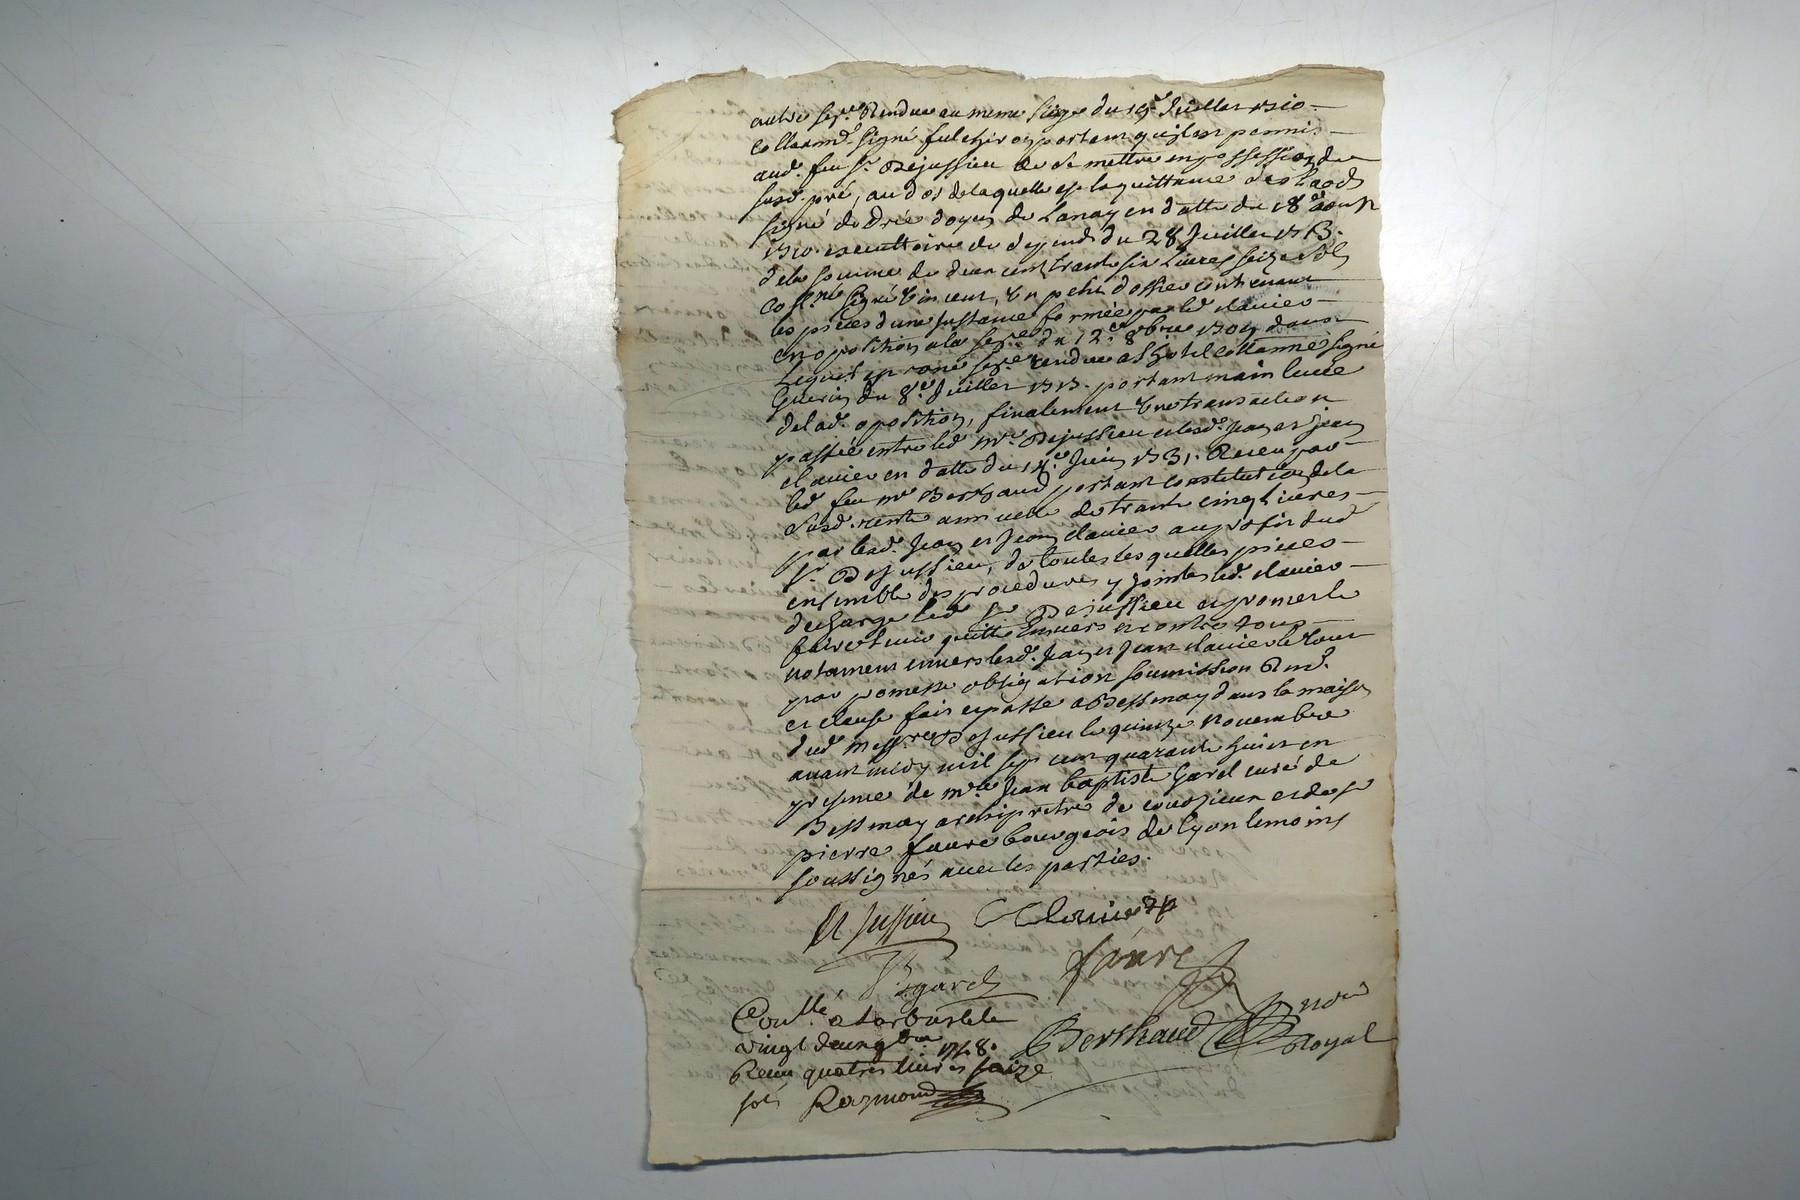 autre sen.ce Rendue au meme siege du 19.e Juillet 1710.
Collationné signé fulchiron portant quil est permis
aud. feu Sr. Dejussieu de se mettre en possession du
susd. pré, au dos de laquelle est la quittance des laods
signé de Drée doyen de Lanay en datte du 18.e aoust
1710. executtoire de depends du 28 Juillet 1713.
de la somme de deux cent trante six Livres seize sols
signé Vincent, Un petit dossier contenant
les pieces d'une Instance formée par led. clavier
en oposition a la sen.ce du 12.e 8bre 1709 dans
lequel est une sen.ce rendue a l'hotel collationné signé
Guerin du 8.e Juillet 1713. portant main levée
de lad. oposition, finalement Une transaction
passée entre led. Mr. Dejussieu et lesd. Jean et Jean
clavier en datte du 14.e Juin 1731. Receu par
led. feu Me Berthaud portant constitution de la
susd. rente annuelle de trante cinq Livres
par lesd. Jean et Jean clavier au profit dud.
Sr. Dejussieu, de toutes lesquelles pieces
ensemble des procedures y jointes led. clavier
decharge led. Sr. Dejussieu et promet le
faire tenir quitte Envers et contre tous
notament envers lesd. Jean et Jean clavier le tout
par promesse obligation soumission Ren.
et clause fait et passé a Bessenay dans la maison
dud. Messire Dejussieu le quinze novembre
avant midy mil sept cent quarante huit en
presence de Mre Jean baptiste Garel curé de
Bessenay archiprêtre de courzieux et de Sr.
pierre faure bourgeois de Lyon temoins
soussignés avec les parties.
De Jussieu Clavier
Garel faure
Conllé a Larbresle le
vingt deux 9bre 1748.
Receu quatres livres saize
sols Raymond
Berthaud nore
Royal